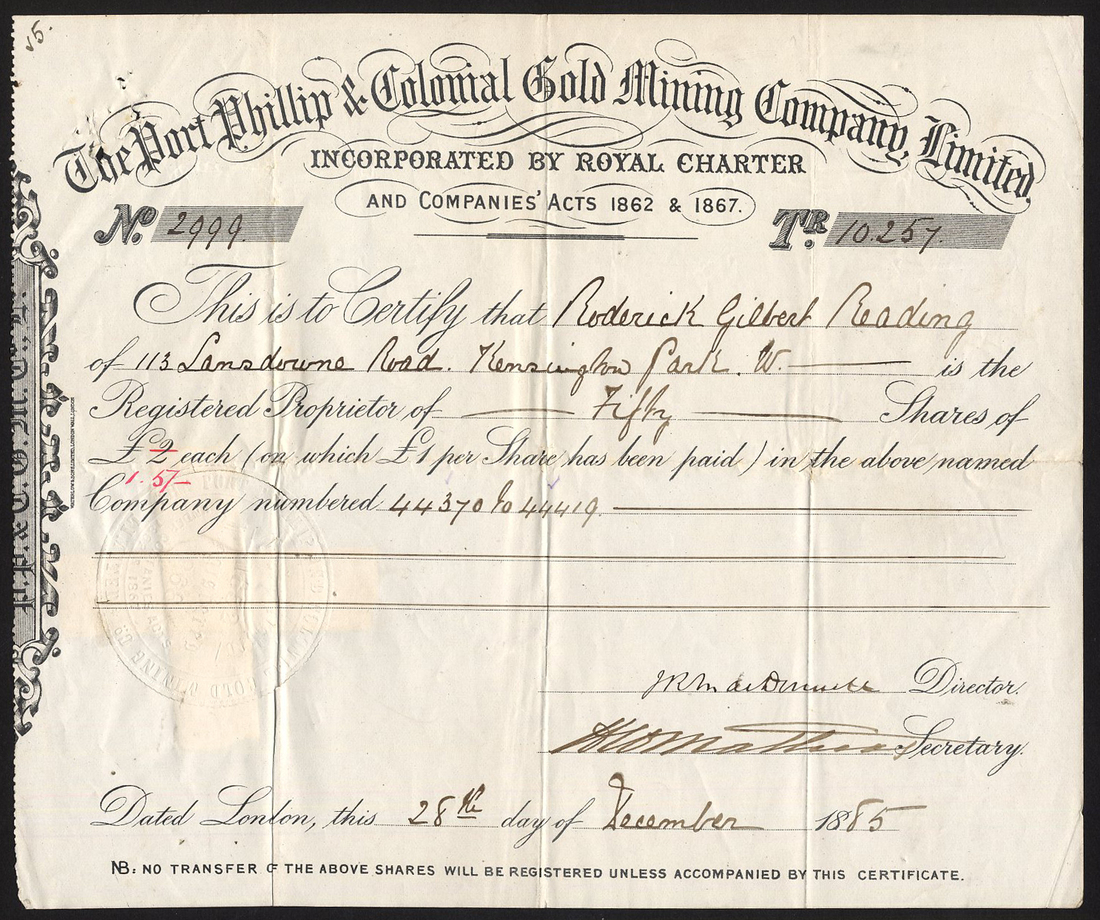 15.
The Port Phillip & Colonial Gold Mining Company, Limited.
INCORPORATED BY ROYAL CHARTER
AND COMPANIES' ACTS 1862 & 1867.
No. 2999. TR. 10.257.
This is to Certify that Roderick Gilbert Reading
of 113 Lansdowne Road. Kensington Park. W. is the
Registered Proprietor of Fifty Shares of
£2 each (on which £1 per Share has been paid) in the above named
1. 5/-
Company numbered 44370 to 44419.
Director.
Secretary.
Dated London, this 28th day of December 1885
NB: NO TRANSFER OF THE ABOVE SHARES WILL BE REGISTERED UNLESS ACCOMPANIED BY THIS CERTIFICATE.